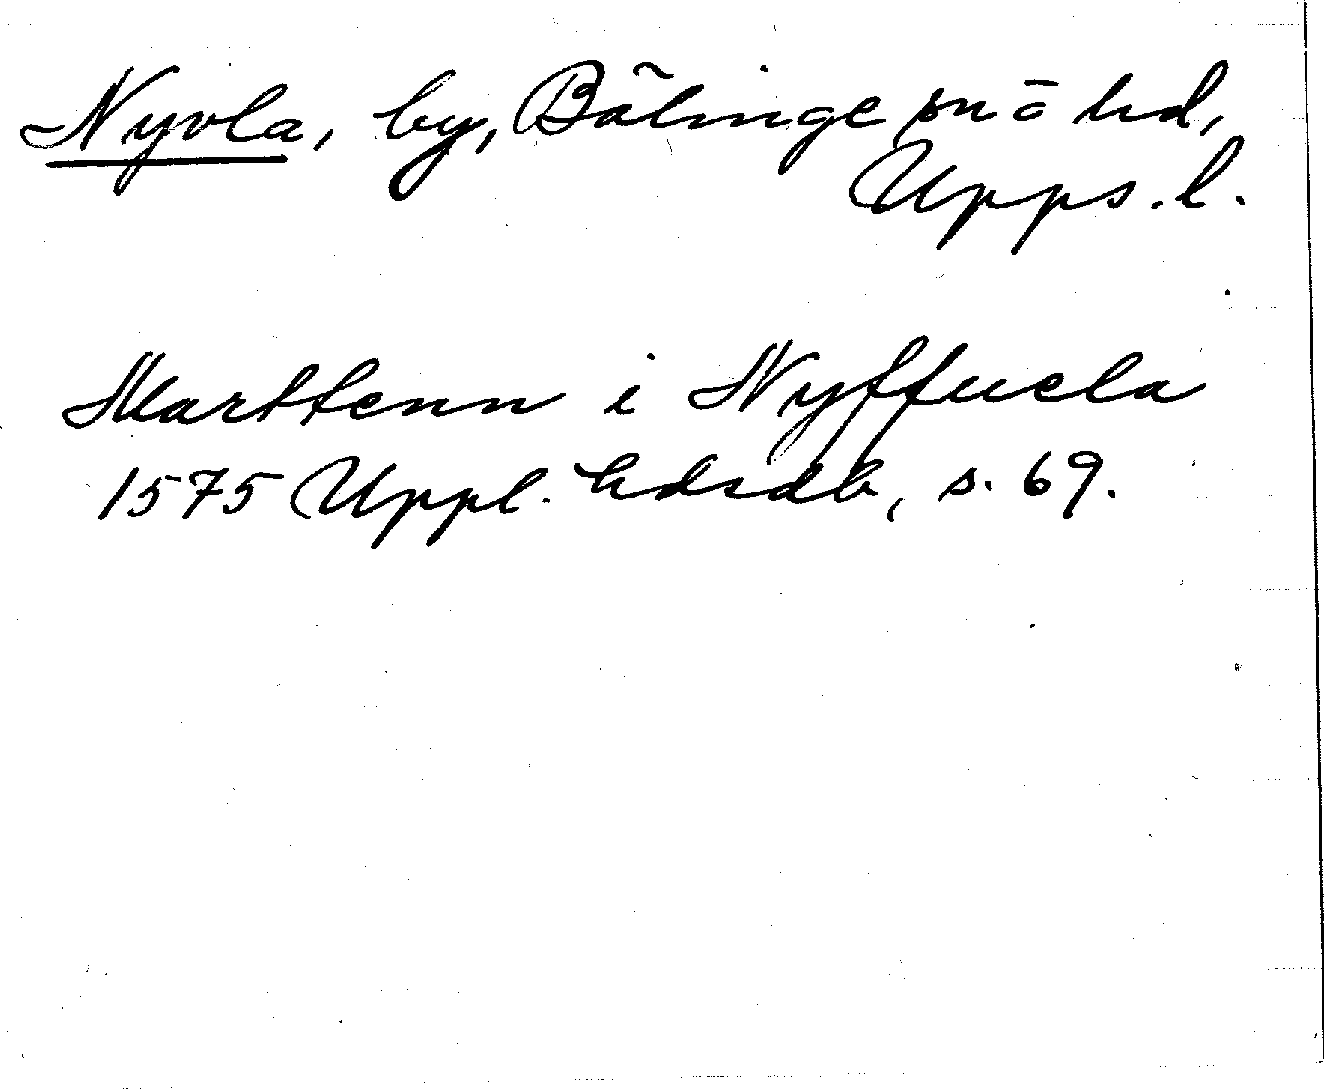 Nyvla, by, Bälinge sn ō hd,
Upps. l.
Marttenn i Nyffuela
1575 Uppl. hdrdb, s. 69.